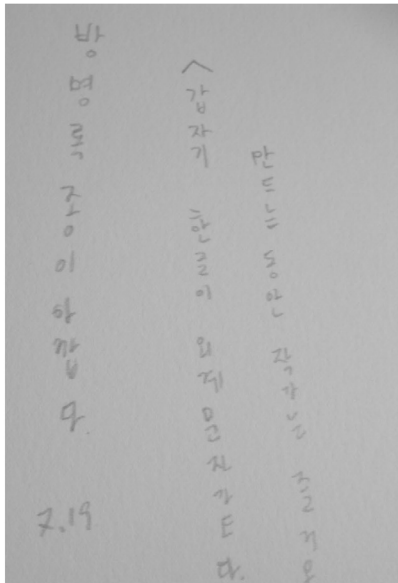 만드는 동안 작가는
<갑자기 한글이 외계문자 같다.
방명록 종이 아깝다. 7.19